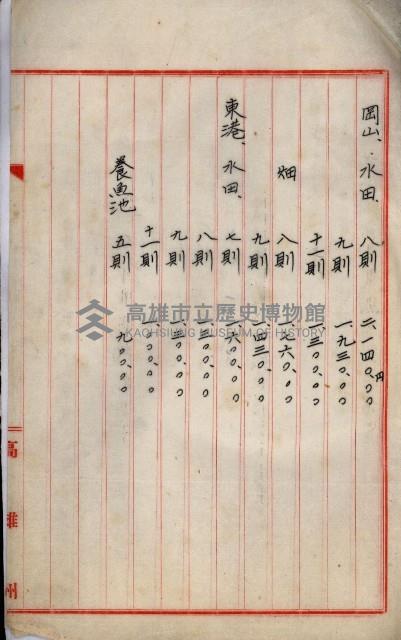 岡山、水田、八則 二、一四〇、〇〇円
九則 一、九三〇、〇〇
十一則 一、三〇〇、〇〇
畑 八則 一、七六〇、〇〇
九則 一、四三〇、〇〇
東港、水田、七則 一、六〇〇、〇〇
八則 一、三〇〇、〇〇
九則
十一則
養魚池 五則 九〇〇、〇〇
高雄州
高雄市立歷史博物館
KAOHSIUNG MUSEUM OF HISTORY